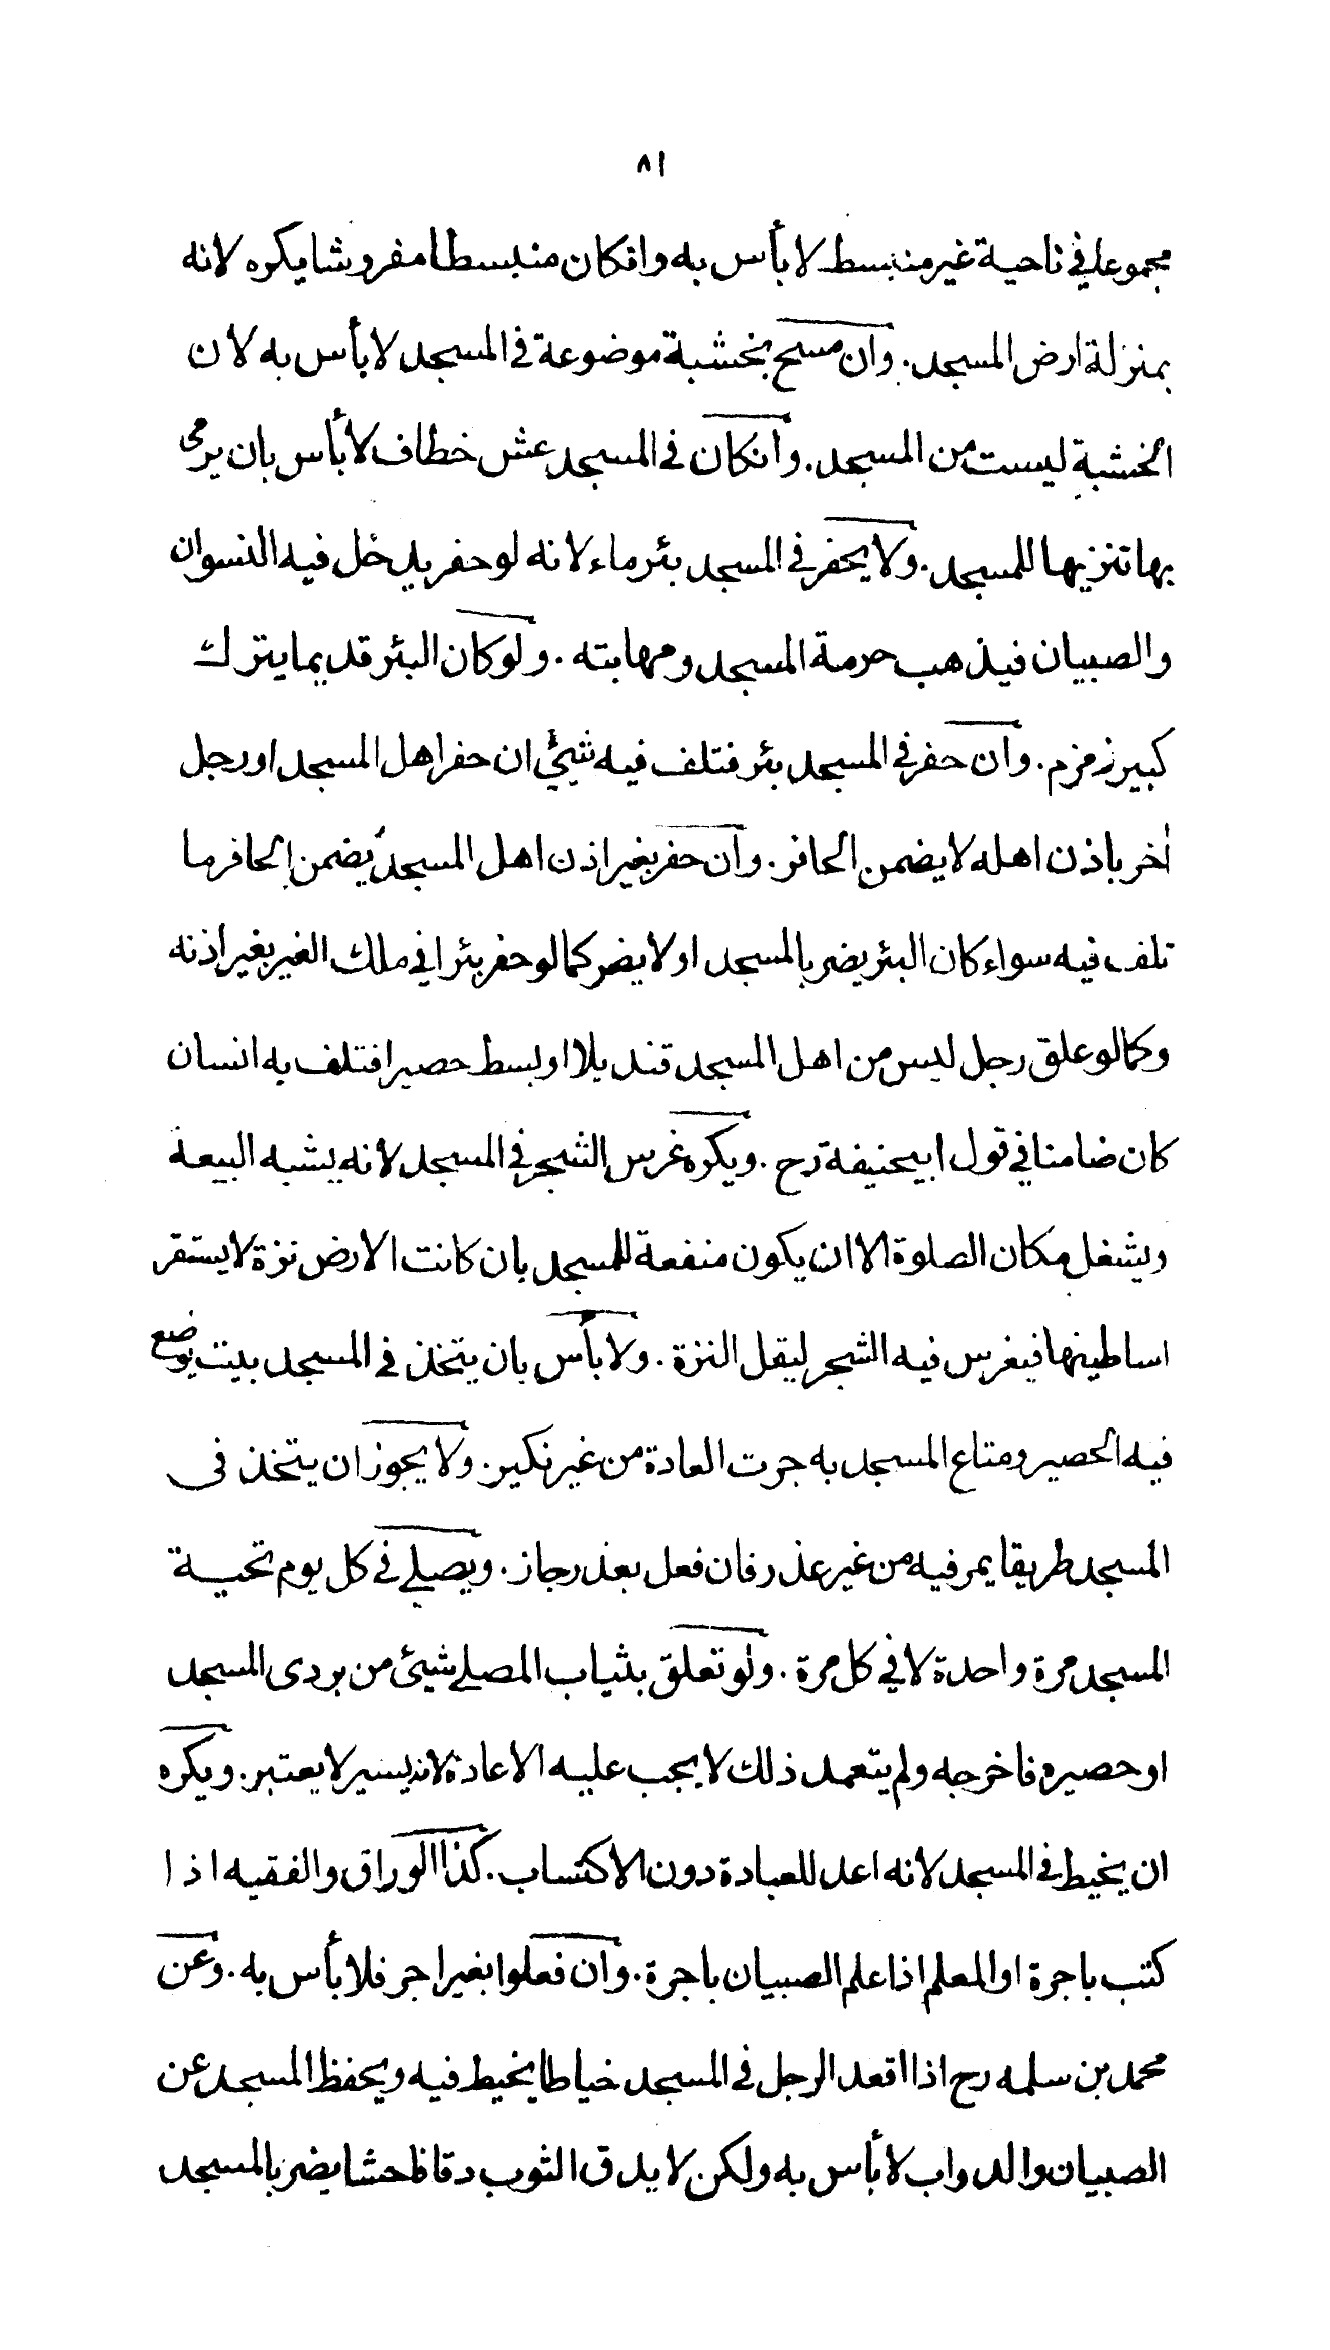 ٨١
مجموعا في ناحية غير منبسط لا بأس به وانكان منبسطا مفروشا يكره لانه
بمنزلة ارض المسجد. وان مسح بخشبة موضوعة في المسجد لا بأس به لان
الخشبة ليست من المسجد. وانكان في المسجد عش خطاف لا بأس بان يرمى
بها تنزيها للمسجد. ولا يحفر في المسجد بئر ماء لانه لو حفر يدخل فيه النسوان
والصبيان فيذهب حرمة المسجد ومهابته. ولو كان البئر قديما يترك
كبير زمزم. وان حفر في المسجد بئر فتلف فيه شيئ ان حفر اهل المسجد او رجل
اٰخر باذن اهله لا يضمن الحافر. وان حفر بغير اذن اهل المسجد يضمن الحافر ما
تلف فيه سواء كان البئر يضر بالمسجد او لا يضر كما لو حفر بئرا في ملك الغير بغير اذنه
وكما لو علق رجل ليس من اهل المسجد قنديلا او بسط حصيرا فتلف به انسان
كان ضامنا في قول ابيحنيفة رح. ويكره غرس الشجر في المسجد لانه يشبه البيعة
ويشغل مكان الصلوة الا ان يكون منفعة للمسجد بان كانت الارض نزة لا يستقر
اساطينها فيغرس فيه الشجر ليقل النزة. ولا بأس بان يتخذ في المسجد بيت يوضع
فيه الحصير ومتاع المسجد به جرت العادة من غير نكير. ولا يجوز ان يتخذ فى
المسجد طريقا يمر فيه من غير عذر فان فعل بعذر جاز. ويصلي في كل يوم تحية
المسجد مرة واحدة لا في كل مرة. ولو تعلق بثياب المصلي شيئ من بردى المسجد
او حصيره فاخرجه ولم يتعمد ذلك لا يجب عليه الاعادة لانه يسير لا يعتبر. ويكره
ان يخيط في المسجد لانه اعد للعبادة دون الاكتساب. كذا الوراق والفقيه اذا
كتب باجرة او المعلم اذا علم الصبيان باجرة. وان فعلوا بغير اجر فلا بأس به. وعن
محمد بن سلمه رح اذا اقعد الرجل في المسجد خياطا يخيط فيه ويحفظ المسجد عن
الصبيان والدواب لا بأس به ولكن لا يدق الثوب دقا فاحشا يضر بالمسجد